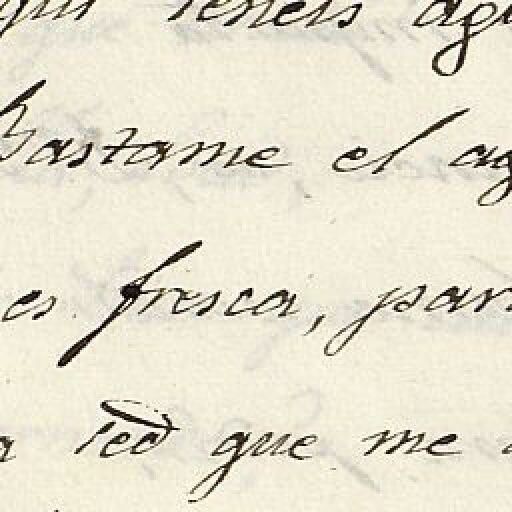 teneis
Bastame el
es fresca, par
sed que me